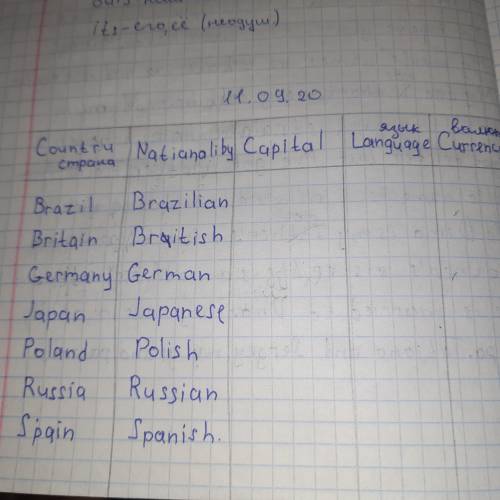 its-его, её (неодуш)
11.09.20
Country Nationality Capital язык Language валют Currenc
страна
Brazil Brazilian
Britain British
Germany German
Japan Japanese
Poland Polish
Russia Russian
Spain Spanish.